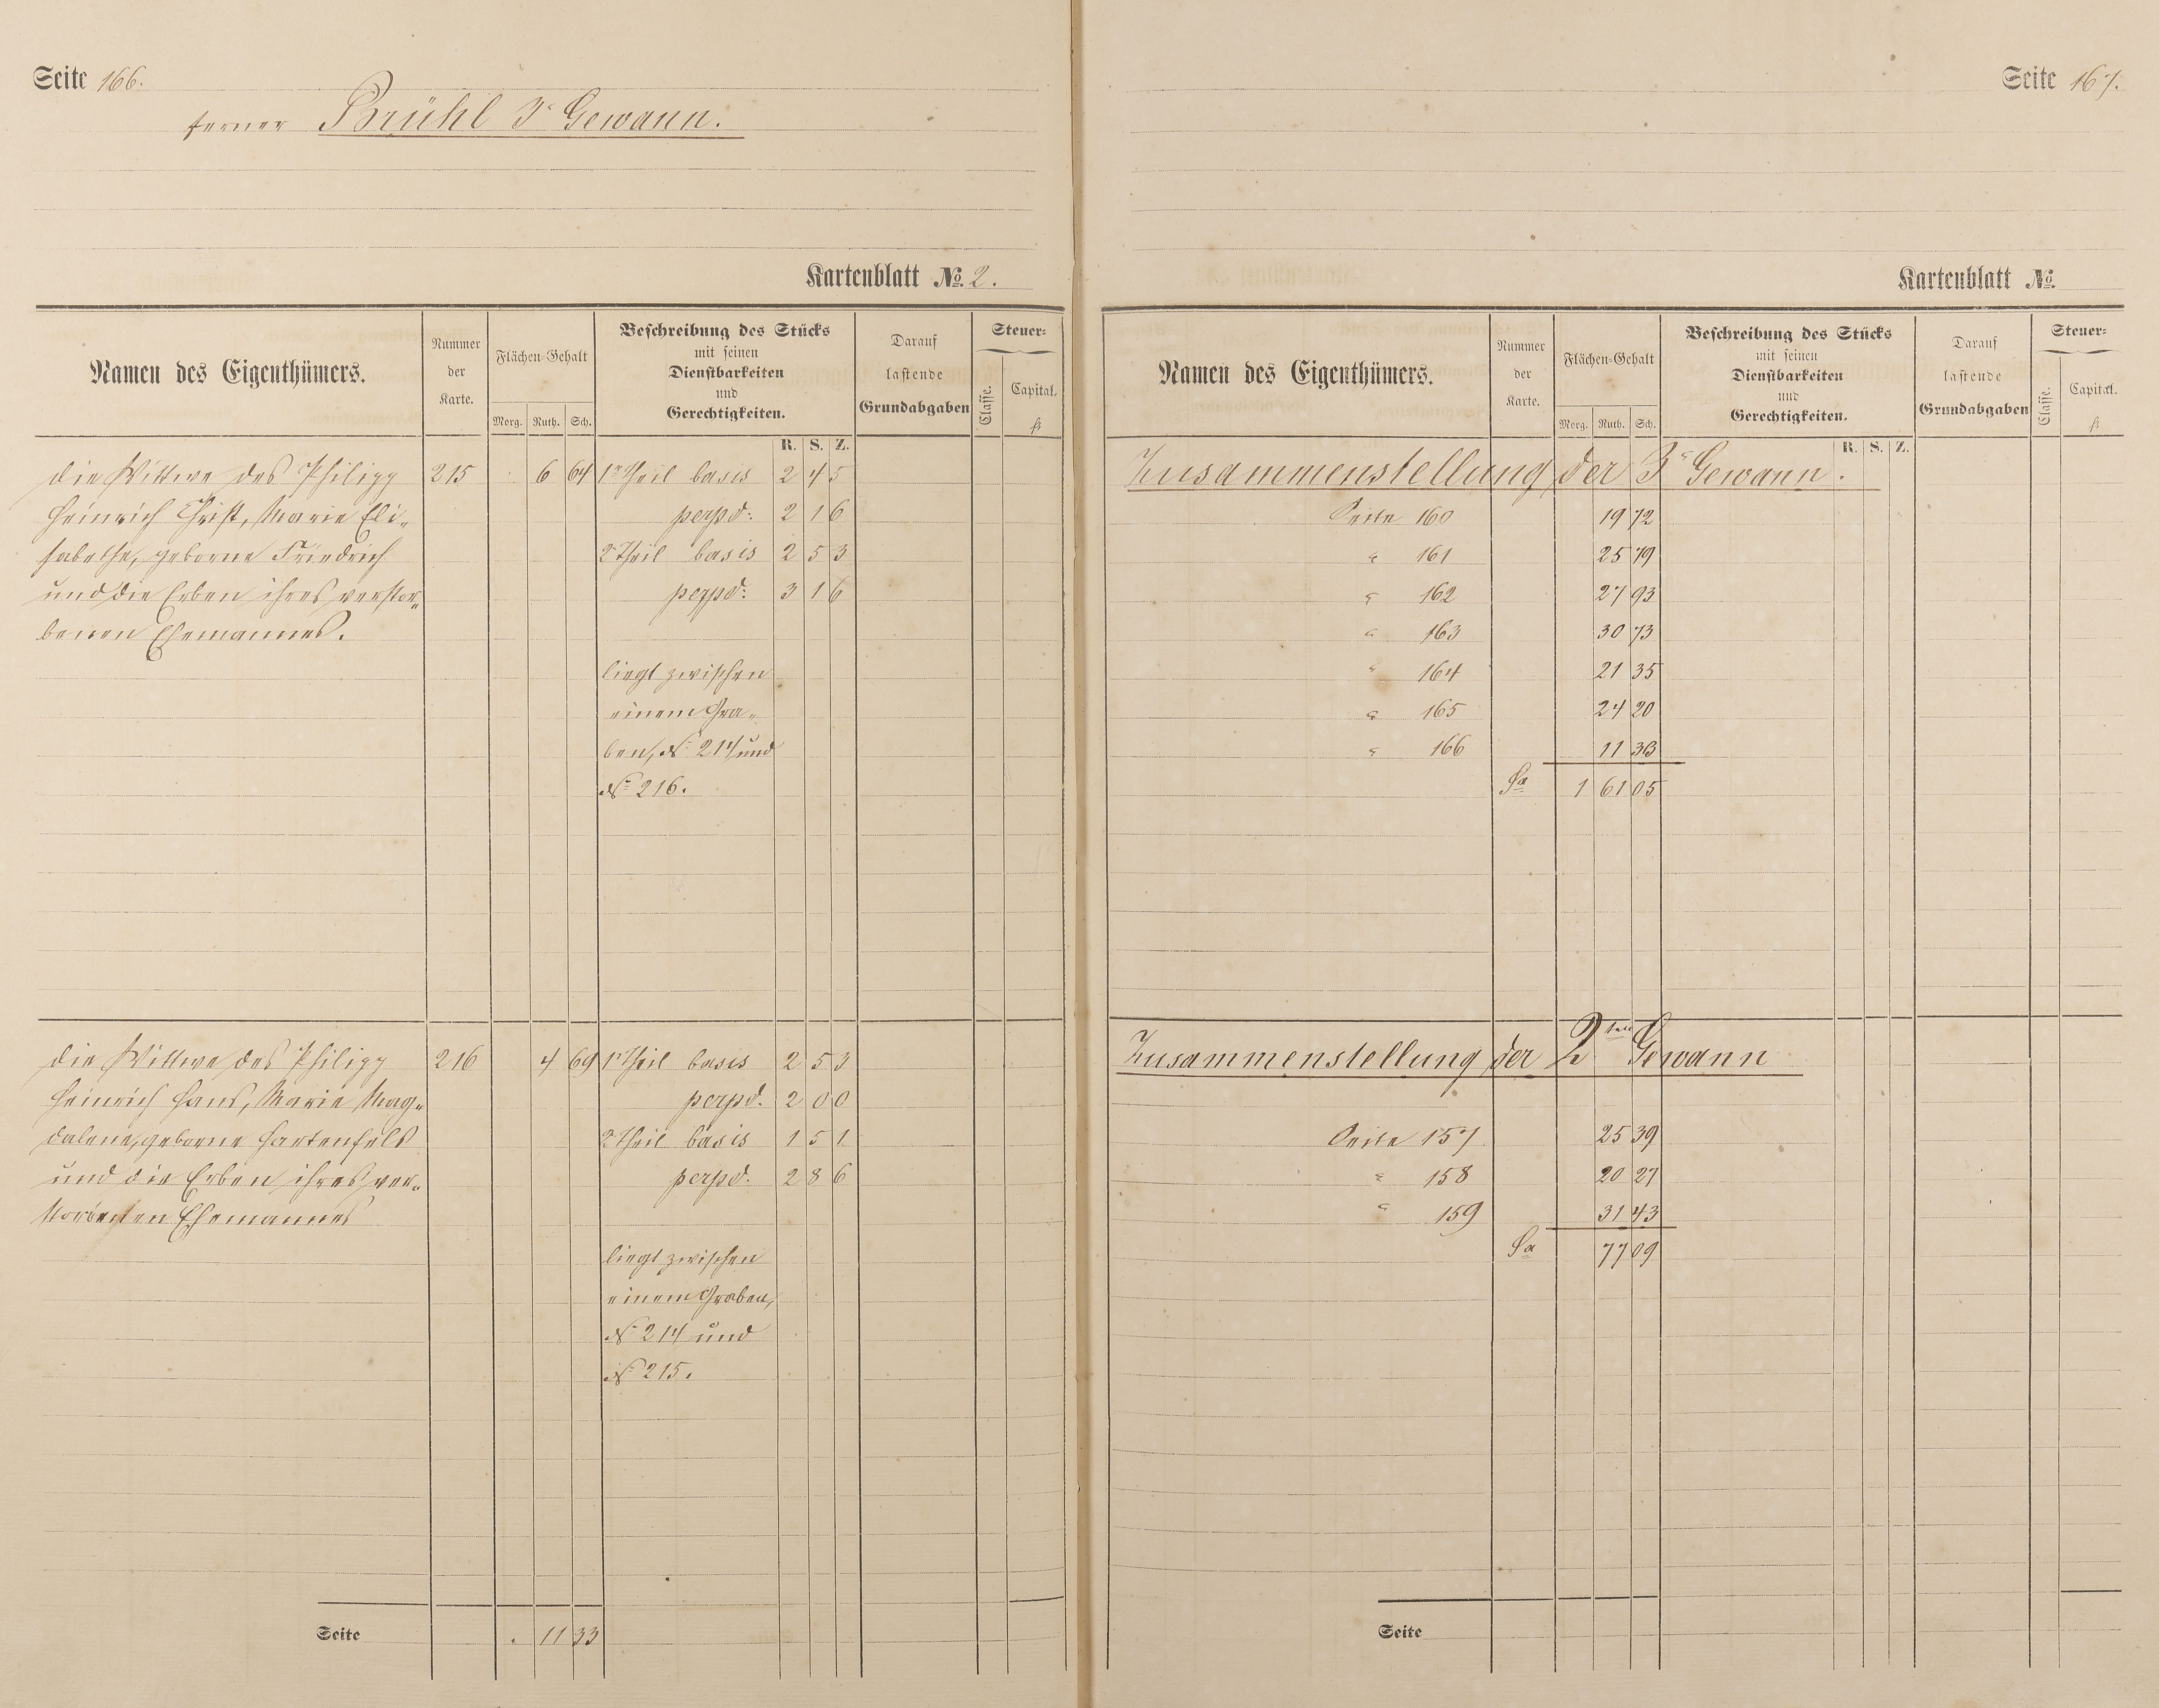 Seite 166.
ferner Brühl 3r Gewann.
Kartenblatt No. 2.
Namen des Eigenthümers.
Nummer der Karte.
Flächen-Gehalt
Morg. Ruth. Sch.
Beschreibung des Stücks
mit seinen
Dienstbarkeiten
und
Gerechtigkeiten.
R. S. Z.
Darauf
lastende
Grundabgaben
Steuer-
Classe. Capital.
fl
die Wittwe des Philipp 215 . 6 64 1r Theil basis 2 4 5
Heinrich Christ, Marie Eli- perpd: 2 1 6
sabethe, geborne Friedrich 2r Theil basis 2 5 3
und die Erben ihres verstor- perpd: 3 1 6
benen Ehemannes.
liegt zwischen
einem Gra-
ben, No 214 und
No 216.
die Wittwe des Philipp 216 4 69 1r Theil basis 2 5 3
Heinrich Hans, Marie Mag- perpd. 2 0 0
dalene, geborne Hartenfels 2r Theil basis 1 5 1
und die Erben ihres ver- perpd. 2 8 6
storbenen Ehemannes
liegt zwischen
einem Graben,
No 214 und
No 215.
Seite . 11 33
Seite 167.
Kartenblatt No.
Namen des Eigenthümers.
Nummer der Karte.
Flächen-Gehalt
Morg. Ruth. Sch.
Beschreibung des Stücks
mit seinen
Dienstbarkeiten
und
Gerechtigkeiten.
R. S. Z.
Darauf
lastende
Grundabgaben
Steuer-
Classe. Capital.
fl
Zusammenstellung der 3r Gewann.
Seite 160 19 72
" 161 25 79
" 162 27 93
" 163 30 73
" 164 21 35
" 165 24 20
" 166 11 33
Sa 1 61 05
Zusammenstellung der 2ten Gewann
Seite 157 25 39
" 158 20 27
" 159 31 43
Sa 77 09
Seite